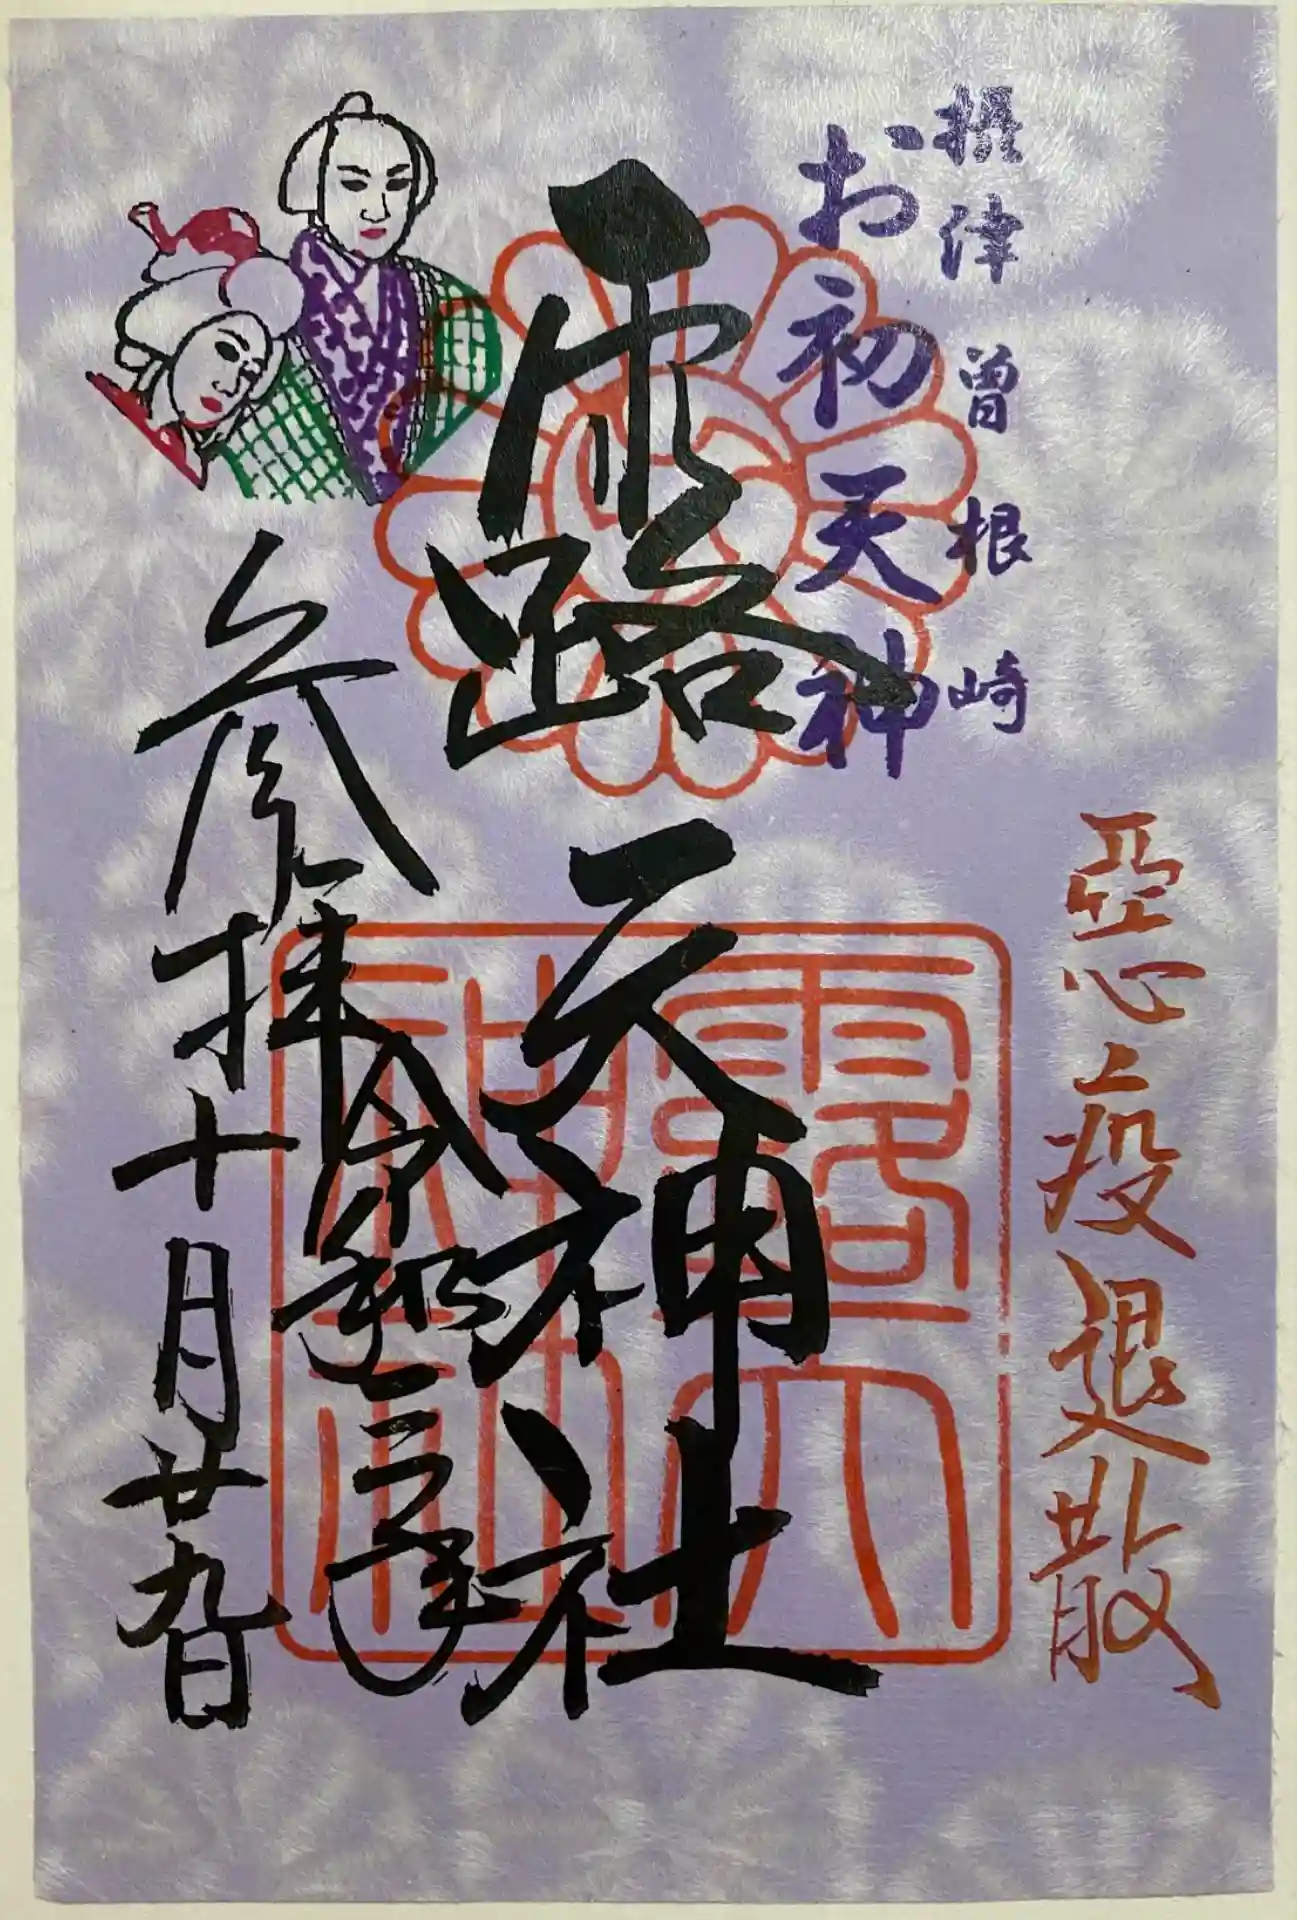 惡疫退散
摂津曽根崎
お初天神
露天神社
露天
神社
令和三年
参拝十月廿九日